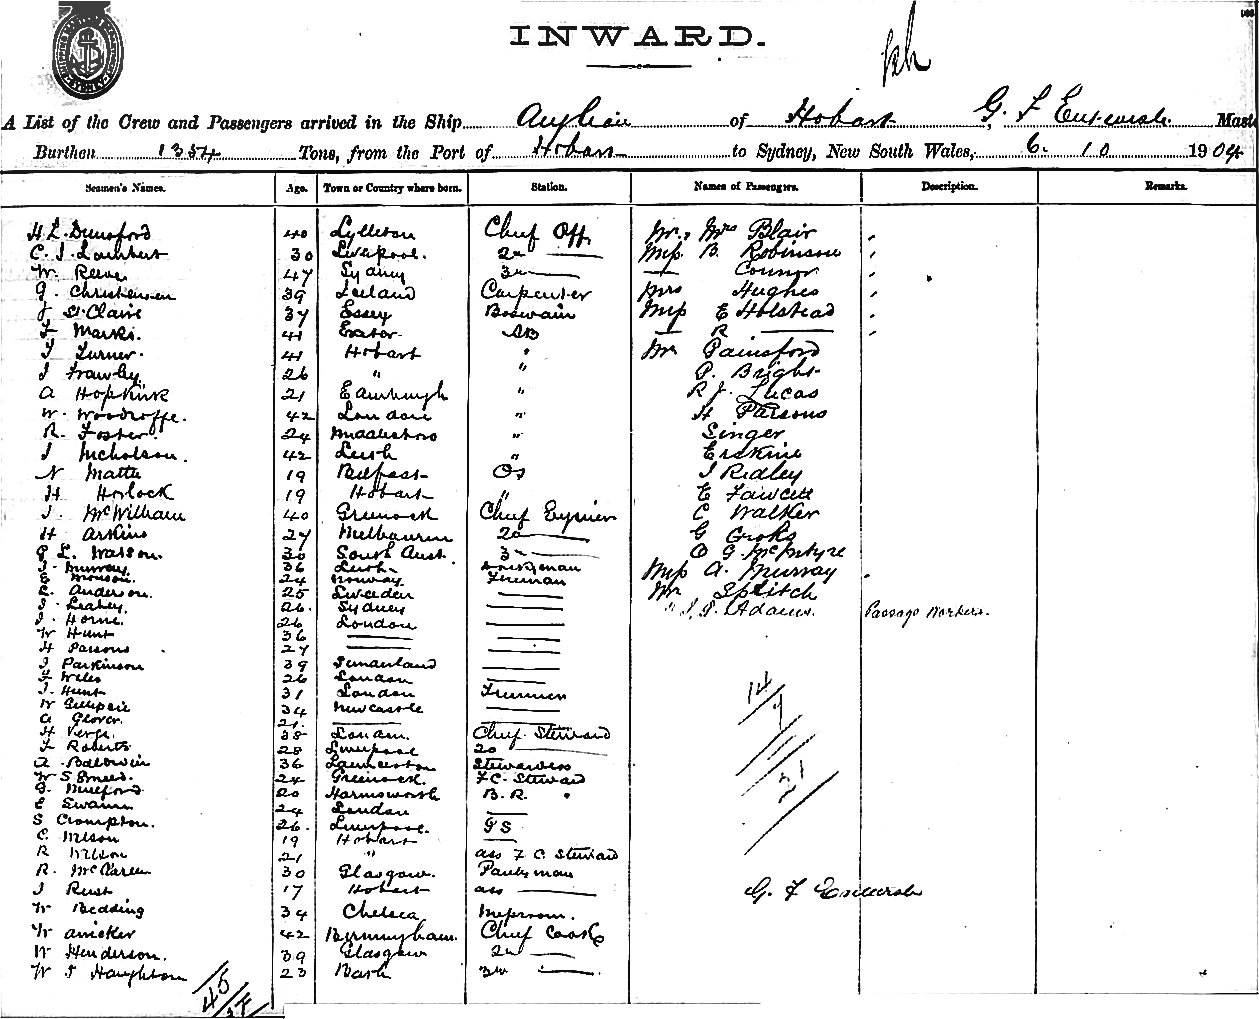 INWARD.
A List of the Crew and Passengers arrived in the Ship Anglian of Hobart, G. F. Entwisle Master
Burthen 1354 Tons, from the Port of Hobart to Sydney, New South Wales, 6. 10 1904
Seamen's Names. Age. Town or Country where born. Station. Names of Passengers. Description. Remarks.
H L Dunsford 40 Lyttleton Chief Off Mr. Mrs Blair
C. J. Lambert 30 Liverpool. 2nd Miss B. Robinson
W. Reeve 47 Sydney 3rd Connor
G. Christensen 39 Iceland Carpenter Mrs Hughes
J St Claire 37 Essex Boswain Miss E Holstead
F Marks. 41 Exeter AB R
T Turner. 41 Hobart " Mr Painsford
J Frawley 26 " " P. Bright
A Hopkirk 21 Edinburgh " R J. Lucas
W. Woodroffe. 42 London " H Parsons
R. Foster. 24 Middlesboro " Singer
J Nicholson. 42 Leith " Erskine
N Matte 19 Belfast OS J Ridley
H Horlock 19 Hobart " E Fawcett
J. McWilliam 40 Greenock Chief Engineer C Walker
H Askins 27 Melbourne 2nd G Crooks
G L. Watson. 30 South Aust. 3rd D G McIntyre
J. Murray 36 Leith Miss A. Murray
E Monson. 24 Norway Fireman Mr Splitch
E. Anderson. 25 Sweden
J. Leahey. 26. Sydney " J. P. Adams. Passage Workers.
J. Horne. 26 London
W Hunt 36
H Parsons 27
J Parkinson 39 Sunderland
F Wiles 26 London
J. Hunt 31 London Trimmer 14
W Gillespie 34 Newcastle 7
A Glover. 21.
H Verge. 38 London. Chief Steward
F Roberts 28 Liverpool 2nd
A Baldwin 36 Launceston Stewardess
W S Smeed. 24 Greenock. F.C. Steward 21
G. Mulford 20 Harmsworth B. R.
E Swann 24 London
S Crompton. 26. Liverpool. GS
C. Wilson 19 Hobart
R Wilson 21 " ass F. C. Steward
R. McLaren 30 Glasgow. Pantryman
J Rust 17 Hobart ass G. F Entwisle
W Bedding 34 Chelsea Messroom.
W 42 Birmingham. Chief Cook
W Henderson. 39 Glasgow 2nd
W J Haughton 23 Bath 3rd
45